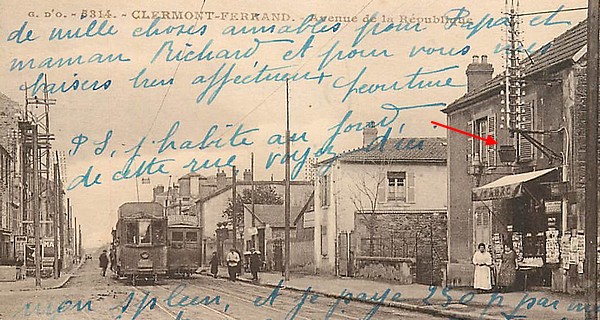 G. D'O. - 5314. - CLERMONT-FERRAND. Avenue de la République
de mille choses aimables pour Papa et
maman Richard et pour vous mes
baisers bien affectueux
PS, j'habite au fond,
de cette rue voyez d'ici
TABAC
mon spleen, et je paye 250 p par